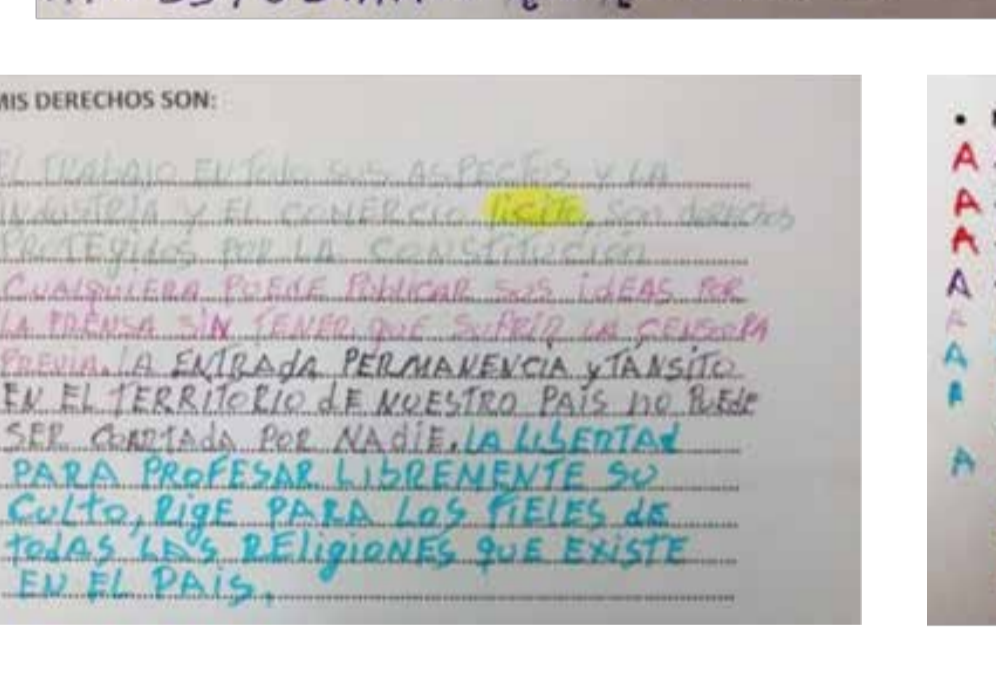 MIS DERECHOS SON:
EL TRABAJO EN Todo SUS ASPECTOS Y LA
INDUSTRIA Y EL COMERCIO LICITO, SON dERECHOS
PROTEgidos POR LA CONSTITUCION
CUALQUIERA PUEDE PUBLICAR SUS idEAS POR
LA PRENSA SIN TENER QUE SUFRIR LA CENSURA
PREVIA. LA ENTRADdA PERMANENCIA y TANSITO
EN EL TERRITORIO dE NUESTRO PAIS NO PUEdE
SER COARTAdA POR NAdIE. LA LIBERTAd
PARA PROFESAR LIBREMENTE SU
CUlto, RIgE PARA LOS FIELES dE
todAS LAS RELIgiONES QUE EXISTE
EN EL PAIS.
A
A
A
A
A
A
A
A